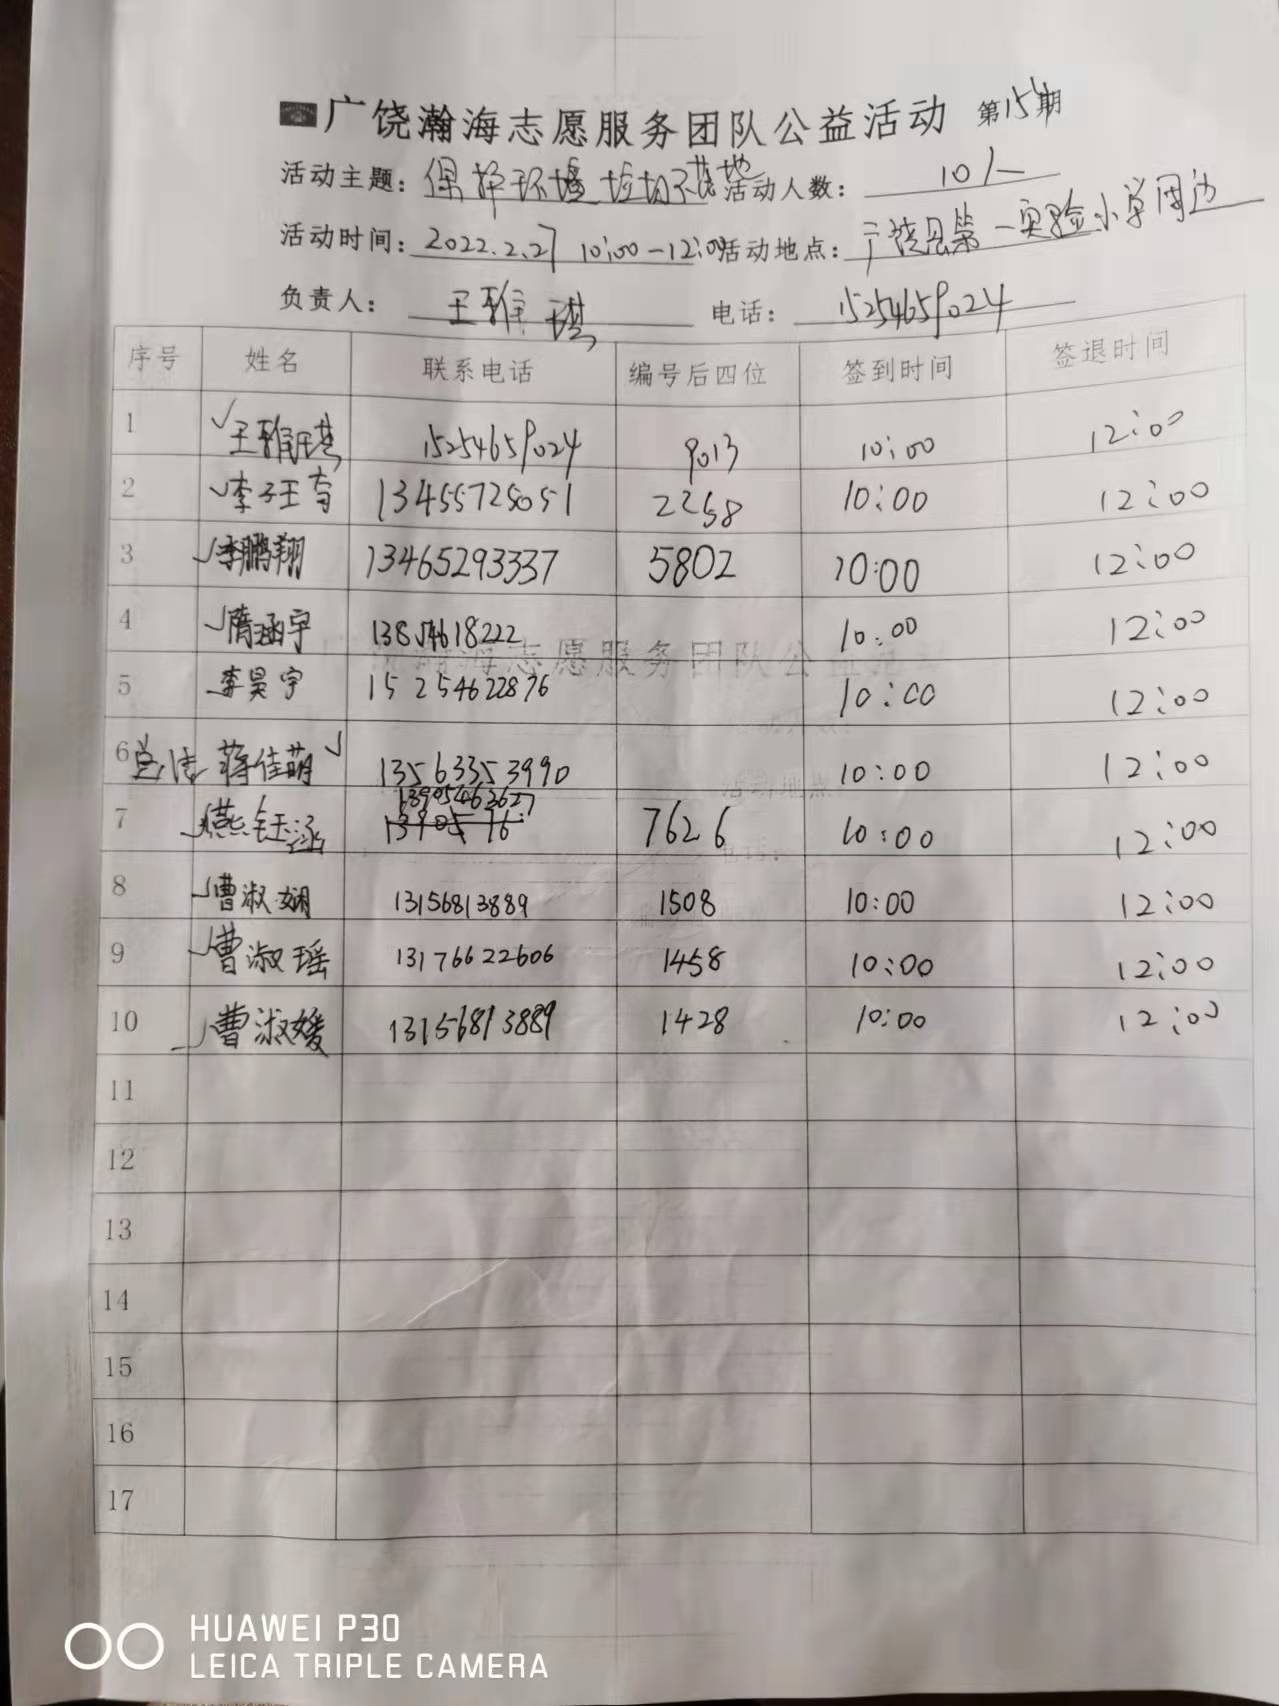 广饶瀚海志愿服务团队公益活动 第15期
活动主题: 保护环境 垃圾不落地 活动人数: 10人
活动时间: 2022.2.27 10:00-12:00 活动地点: 广饶县第一实验小学周边
负责人: 王雅琪 电话: 15254659024
序号 姓名 联系电话 编号后四位 签到时间 签退时间
1 ✓王雅琪 15254659024 9013 10:00 12:00
2 ✓李子王 13455725051 2258 10:00 12:00
3 ✓李鹏翔 13465293337 5802 10:00 12:00
4 ✓隋涵宇 13854618222 10:00 12:00
5 李昊宇 15254622876 10:00 12:00
6 总结 蒋佳萌✓ 13563353990 10:00 12:00
13905463627
7 ✓燕钰涵 13905 16 7626 10:00 12:00
8 ✓曹淑娴 13156813889 1508 10:00 12:00
9 ✓曹淑瑶 13176622606 1458 10:00 12:00
10 ✓曹淑媛 13156813889 1428 10:00 12:00
11
12
13
14
15
16
17
HUAWEI P30
LEICA TRIPLE CAMERA